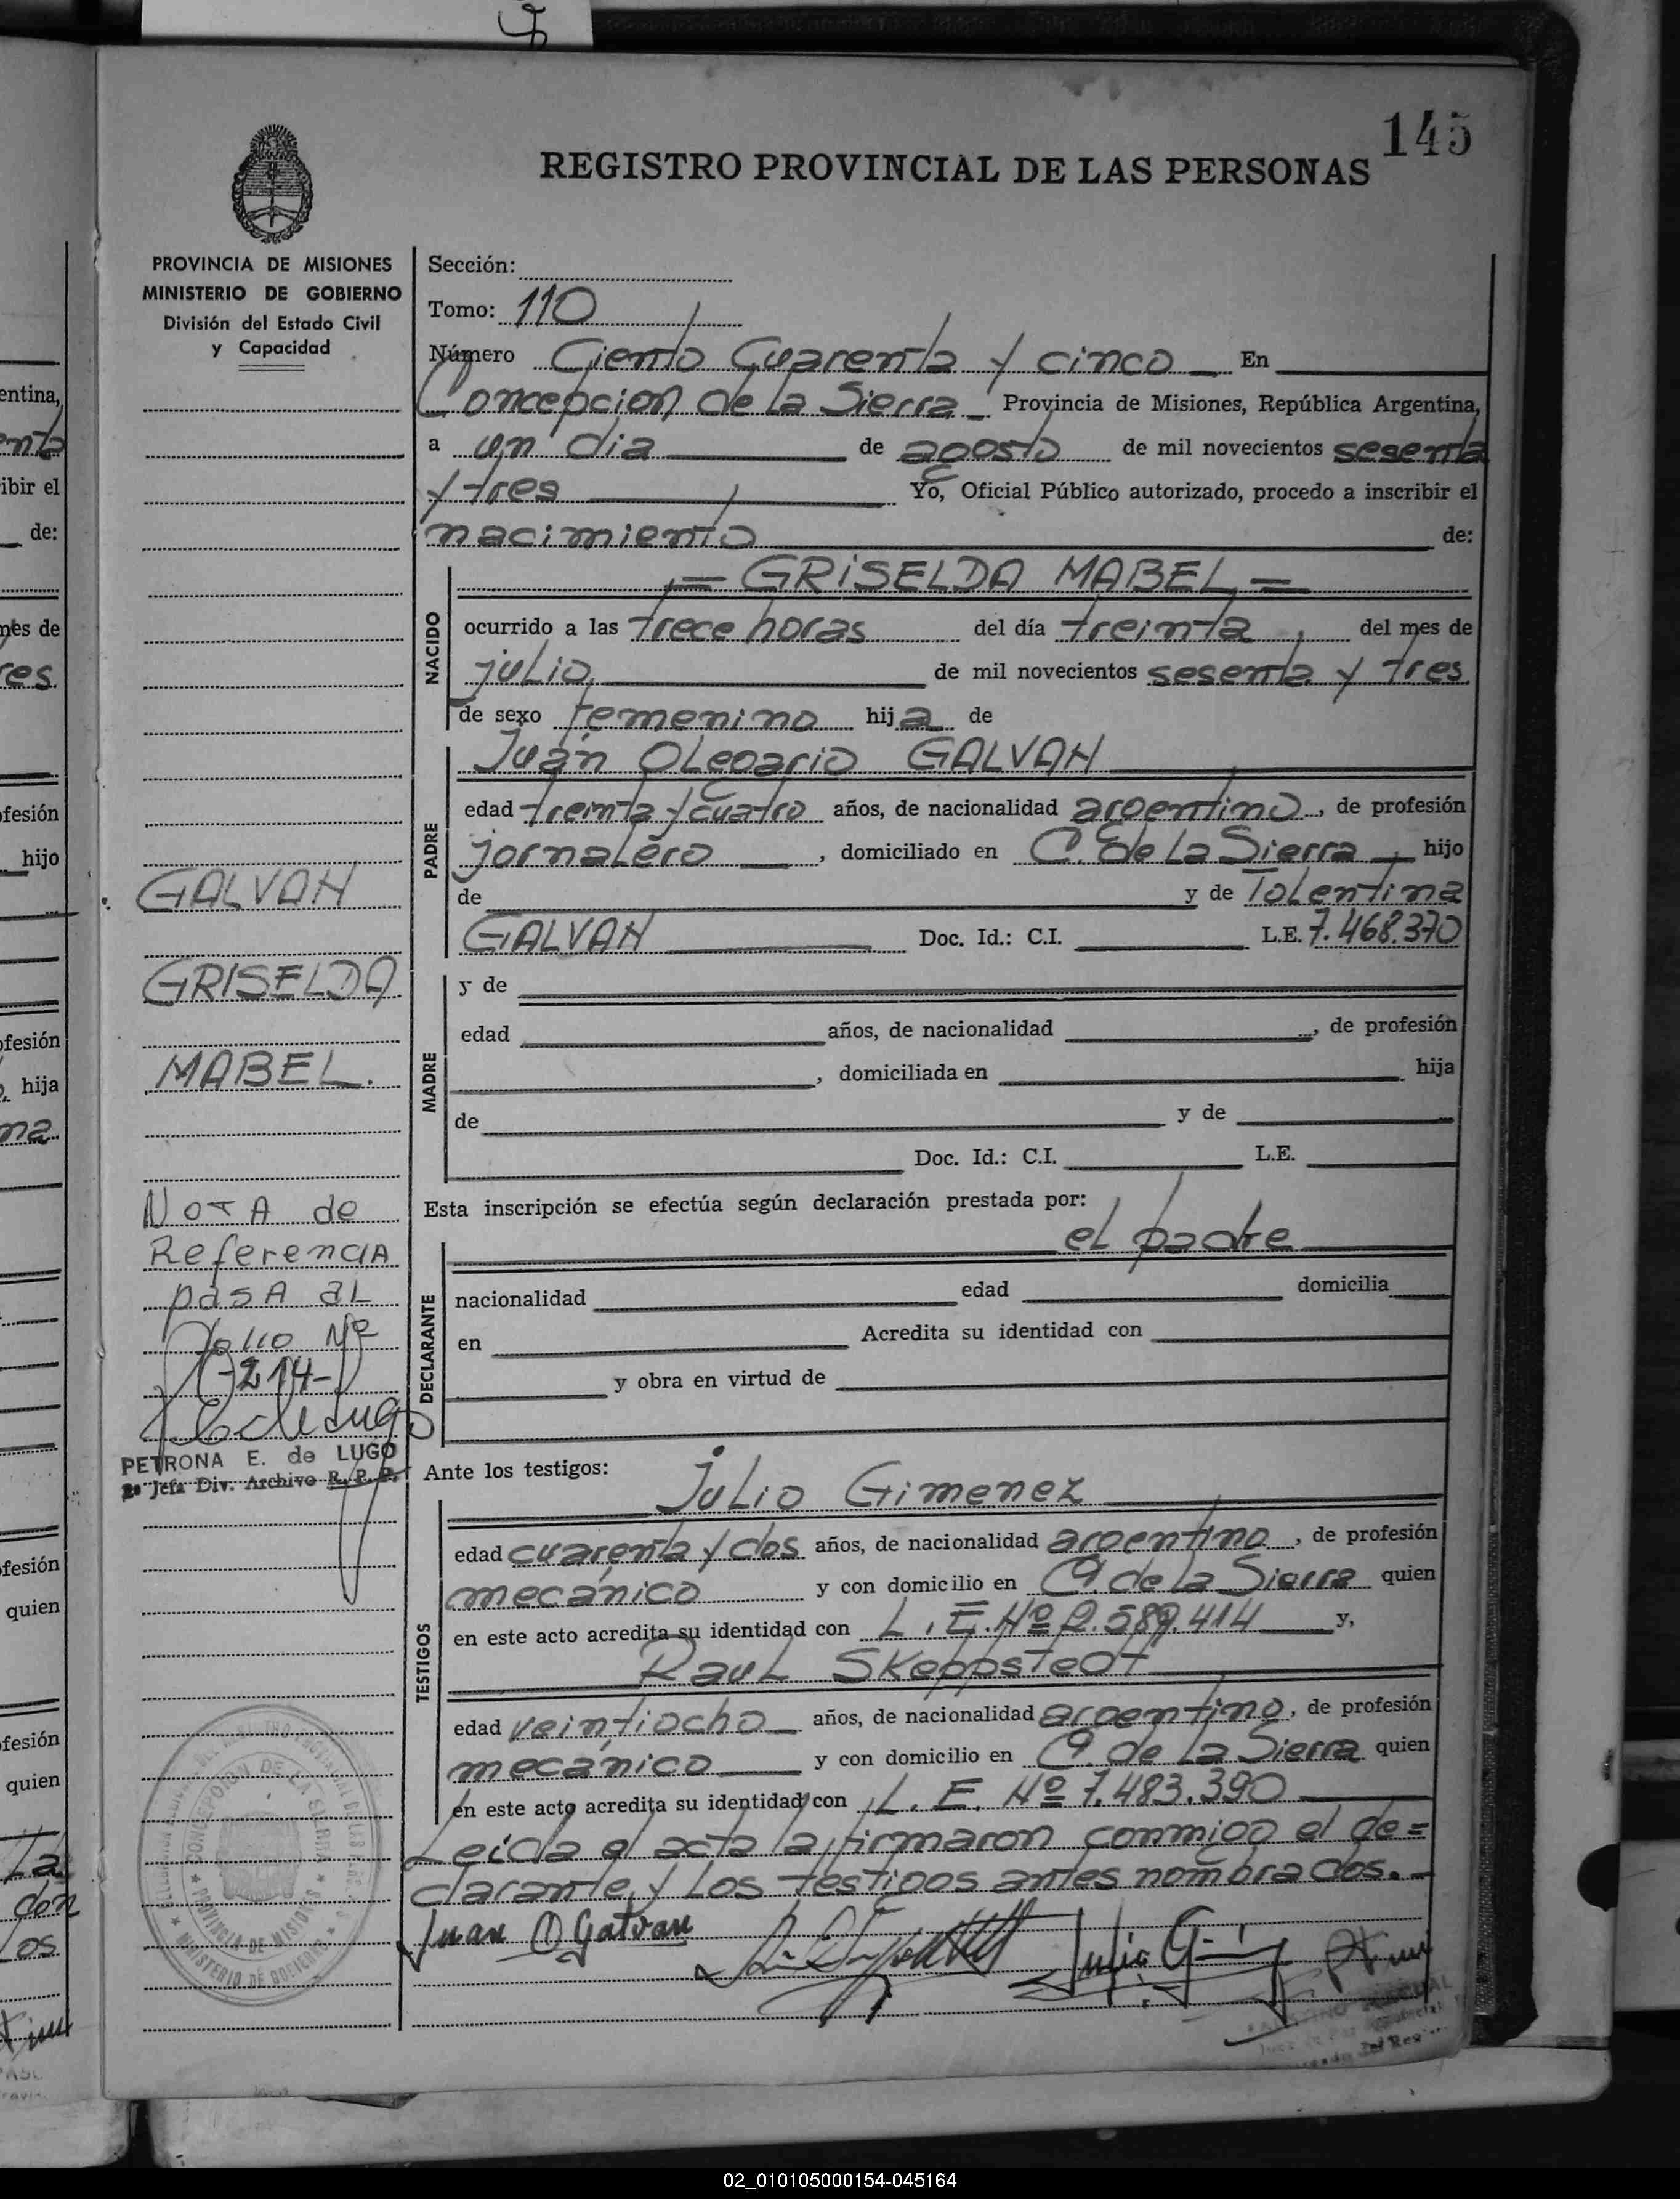 145
REGISTRO PROVINCIAL DE LAS PERSONAS
PROVINCIA DE MISIONES
MINISTERIO DE GOBIERNO
División del Estado Civil
y Capacidad
Sección:
Tomo: 110
Número Ciento Cuarenta y cinco En
Concepcion de la Sierra Provincia de Misiones, República Argentina,
a un dia de agosto de mil novecientos sesenta
y tres Yo, Oficial Público autorizado, procedo a inscribir el
nacimiento de:
NACIDO
= GRISELDA MABEL =
ocurrido a las trece horas del día treinta del mes de
julio de mil novecientos sesenta y tres
de sexo femenino hija de
PADRE
Juan Olegario GALVAN
edad treinta y cuatro años, de nacionalidad argentino, de profesión
jornalero, domiciliado en C. de la Sierra hijo
de y de Tolentina
GALVAN Doc. Id.: C.I. L.E. 7.468.370
MADRE
y de
edad años, de nacionalidad , de profesión
, domiciliada en hija
de y de
Doc. Id.: C.I. L.E.
Esta inscripción se efectúa según declaración prestada por:
DECLARANTE
el padre
nacionalidad edad domicilia
en Acredita su identidad con
y obra en virtud de
Ante los testigos:
TESTIGOS
Julio Gimenez
edad cuarenta y dos años, de nacionalidad argentino, de profesión
mecánico y con domicilio en C. de la Sierra quien
en este acto acredita su identidad con L. E. Nº 2.589.414 y,
Raul Skeppstedt
edad veintiocho años, de nacionalidad argentino, de profesión
mecánico y con domicilio en C. de la Sierra quien
en este acto acredita su identidad con L. E. Nº 7.483.390
Leida el acta la firmaron conmigo el de=
clarante y los testigos antes nombrados.-
Juan O Galvan
Julio
GALVAN
GRISELDA
MABEL.
NOTA de
Referencia
pasa al
folio Nº
-214-
PETRONA E. de LUGO
2ª Jefa Div. Archivo R. P. P.
CONCEPCION DE LA SIERRA
PROVINCIA DE MISIONES
MINISTERIO DE GOBIERNO
entina,
ibir el
de:
mes de
res.
fesión
hijo
fesión
hija
na
fesión
quien
fesión
quien
La
los
02_010105000154-045164